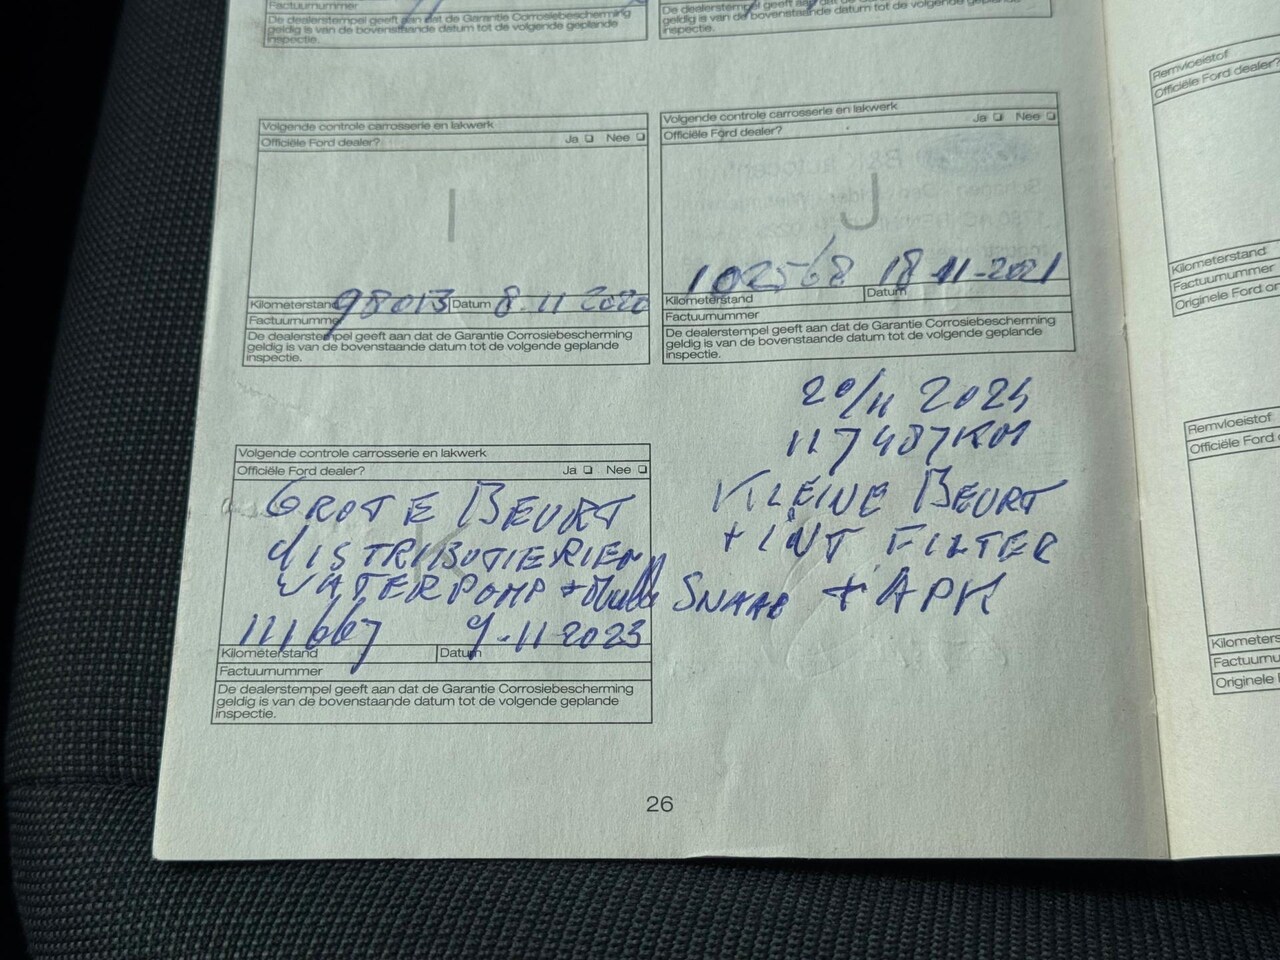 Factuurnummer
De dealerstempel geeft aan dat de Garantie Corrosiebescherming
geldig is van de bovenstaande datum tot de volgende geplande
inspectie.
De dealerstempel geeft aan dat de Garantie Corrosiebescherming
geldig is van de bovenstaande datum tot de volgende geplande
inspectie.
Volgende controle carrosserie en lakwerk
Officiële Ford dealer? Ja ❏ Nee ❏
I
98013 8-11 2020
Kilometerstand Datum
Factuurnummer
De dealerstempel geeft aan dat de Garantie Corrosiebescherming
geldig is van de bovenstaande datum tot de volgende geplande
inspectie.
Volgende controle carrosserie en lakwerk
Officiële Ford dealer? Ja ❏ Nee ❏
J
102568 18-11-2021
Kilometerstand Datum
Factuurnummer
De dealerstempel geeft aan dat de Garantie Corrosiebescherming
geldig is van de bovenstaande datum tot de volgende geplande
inspectie.
Volgende controle carrosserie en lakwerk
Officiële Ford dealer? Ja ❏ Nee ❏
GROTE BEURT
DISTRIBUTIERIEM
WATERPOMP + Multi SNAAR + APK
111667 9-11-2023
Kilometerstand Datum
Factuurnummer
De dealerstempel geeft aan dat de Garantie Corrosiebescherming
geldig is van de bovenstaande datum tot de volgende geplande
inspectie.
20/11
117487KM
KLEINE BEURT
+ INT FILTER
26
Remvloeistof
Officiële Ford dealer?
Kilometerstand
Factuurnummer
Originele Ford
Remvloeistof
Officiële Ford
Originele